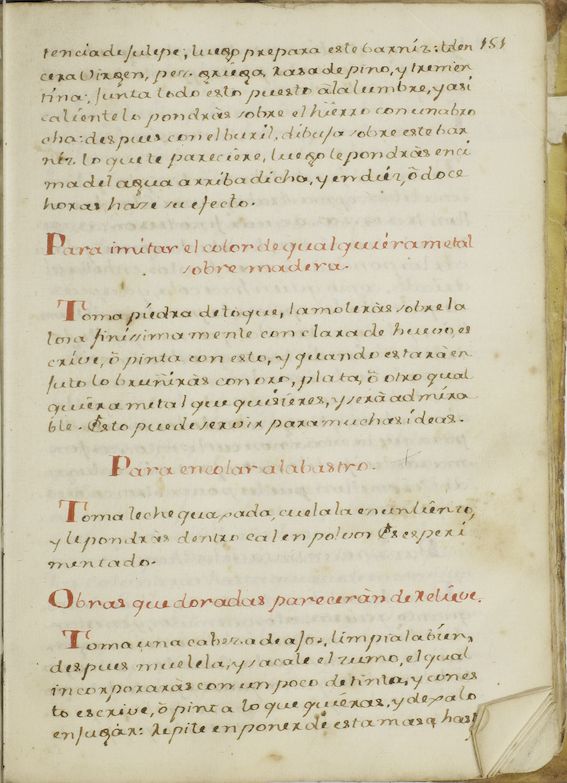 tencia de Julepe; luego prepara este barniz: tden 151
cera Virgen, pez griega, rasa de pino, y tremen
tina: Junta todo esto puesto à la lumbre, y asi
caliente lo pondràs sobre el hierro con una bro
cha: despues con el buril, dibuja sobre este bar
niz. lo que te pareciere, luego le pondràs enci
ma del agua arriba dicho, y en diéz, ò doce
horas haze su efecto.
Para imitar el color de qualquiéra metal
sobre madera.
Toma piedra de toque, la moleràs sobre la
losa finissimamente con clara de huevo, es
crive, ò pinta con esto, y quando estarà en
juto lo bruñiràs con oro, plata, ò otro qual
quiéra metal que quisieres, y serà admira
ble. Esto puede servir para muchas ideas.
Para encolar alabastro.
Toma leche quaxada, cuelala en un liénzo,
y le pondràs dentro cal en polvor Es esperi
mentado.
Obras que doradas pareceràn de relieve.
Toma una cabeza de ajos, limpiala bién,
despues muelela, y sacale el zumo, el qual
incorporaràs con un poco de tinta, y con es
to escrive, ò pinta lo que quiéras, y dexalo
enjugàr: Repite en poner de esta masa has